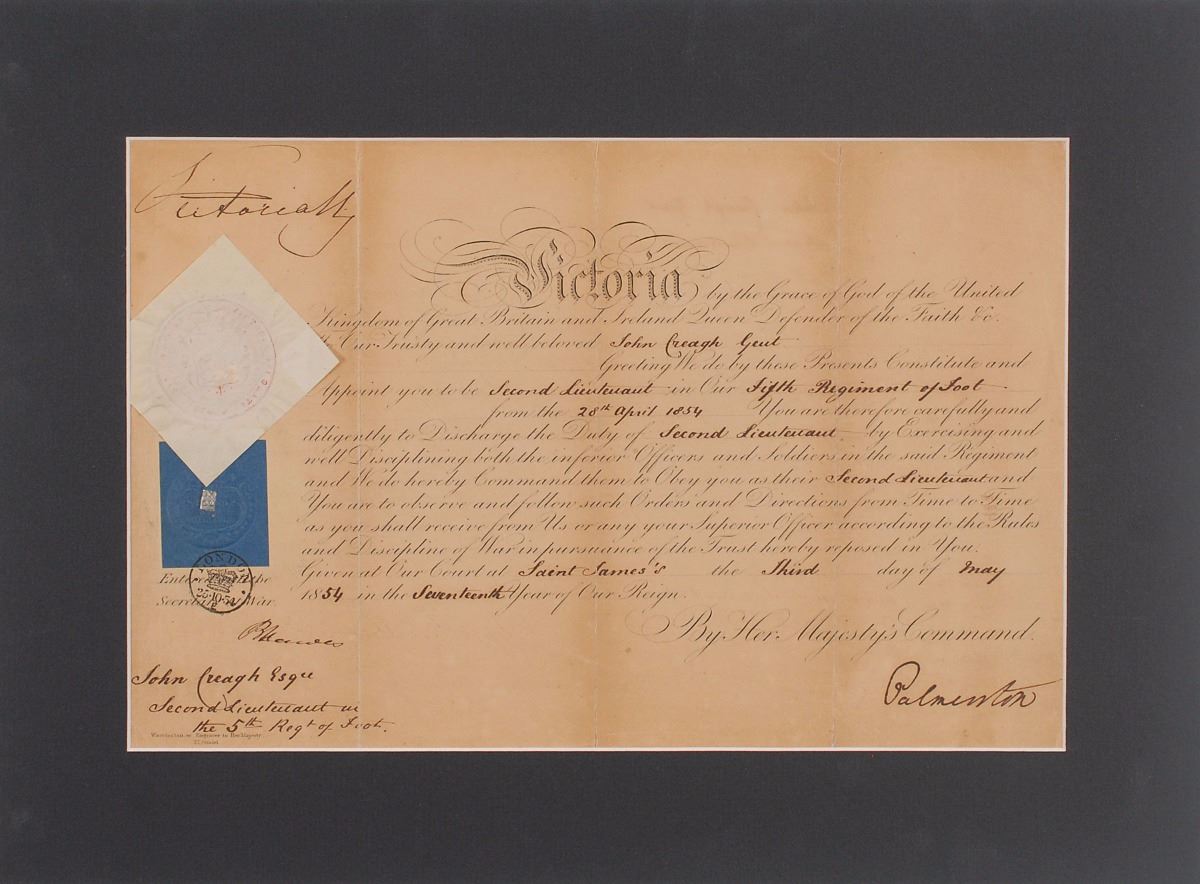 Victoria R
Victoria by the Grace of God of the United
Kingdom of Great Britain and Ireland Queen Defender of the Faith &c.
To Our Trusty and well beloved John Creagh Gent
Greeting We do by these Presents Constitute and
Appoint you to be Second Lieutenant in Our Fifth Regiment of Foot
from the 28th April 1854 You are therefore carefully and
diligently to Discharge the Duty of Second Lieutenant by Exercising and
well Disciplining both the inferior Officers and Soldiers in the said Regiment
and We do hereby Command them to Obey you as their Second Lieutenant and
You are to observe and follow such Orders and Directions from Time to Time
as you shall receive from Us or any your Superior Officer according to the Rules
and Discipline of War in pursuance of the Trust hereby reposed in You.
Given at Our Court at Saint James's the Third day of May
1854 in the Seventeenth Year of Our Reign.
By Her Majesty's Command.
Palmerston
LONDON
25·10·54
Entered with the
Secretary War.
John Creagh Esqre
Second Lieutenant in
the 5th Regt of Foot.
Engraver to Her Majesty